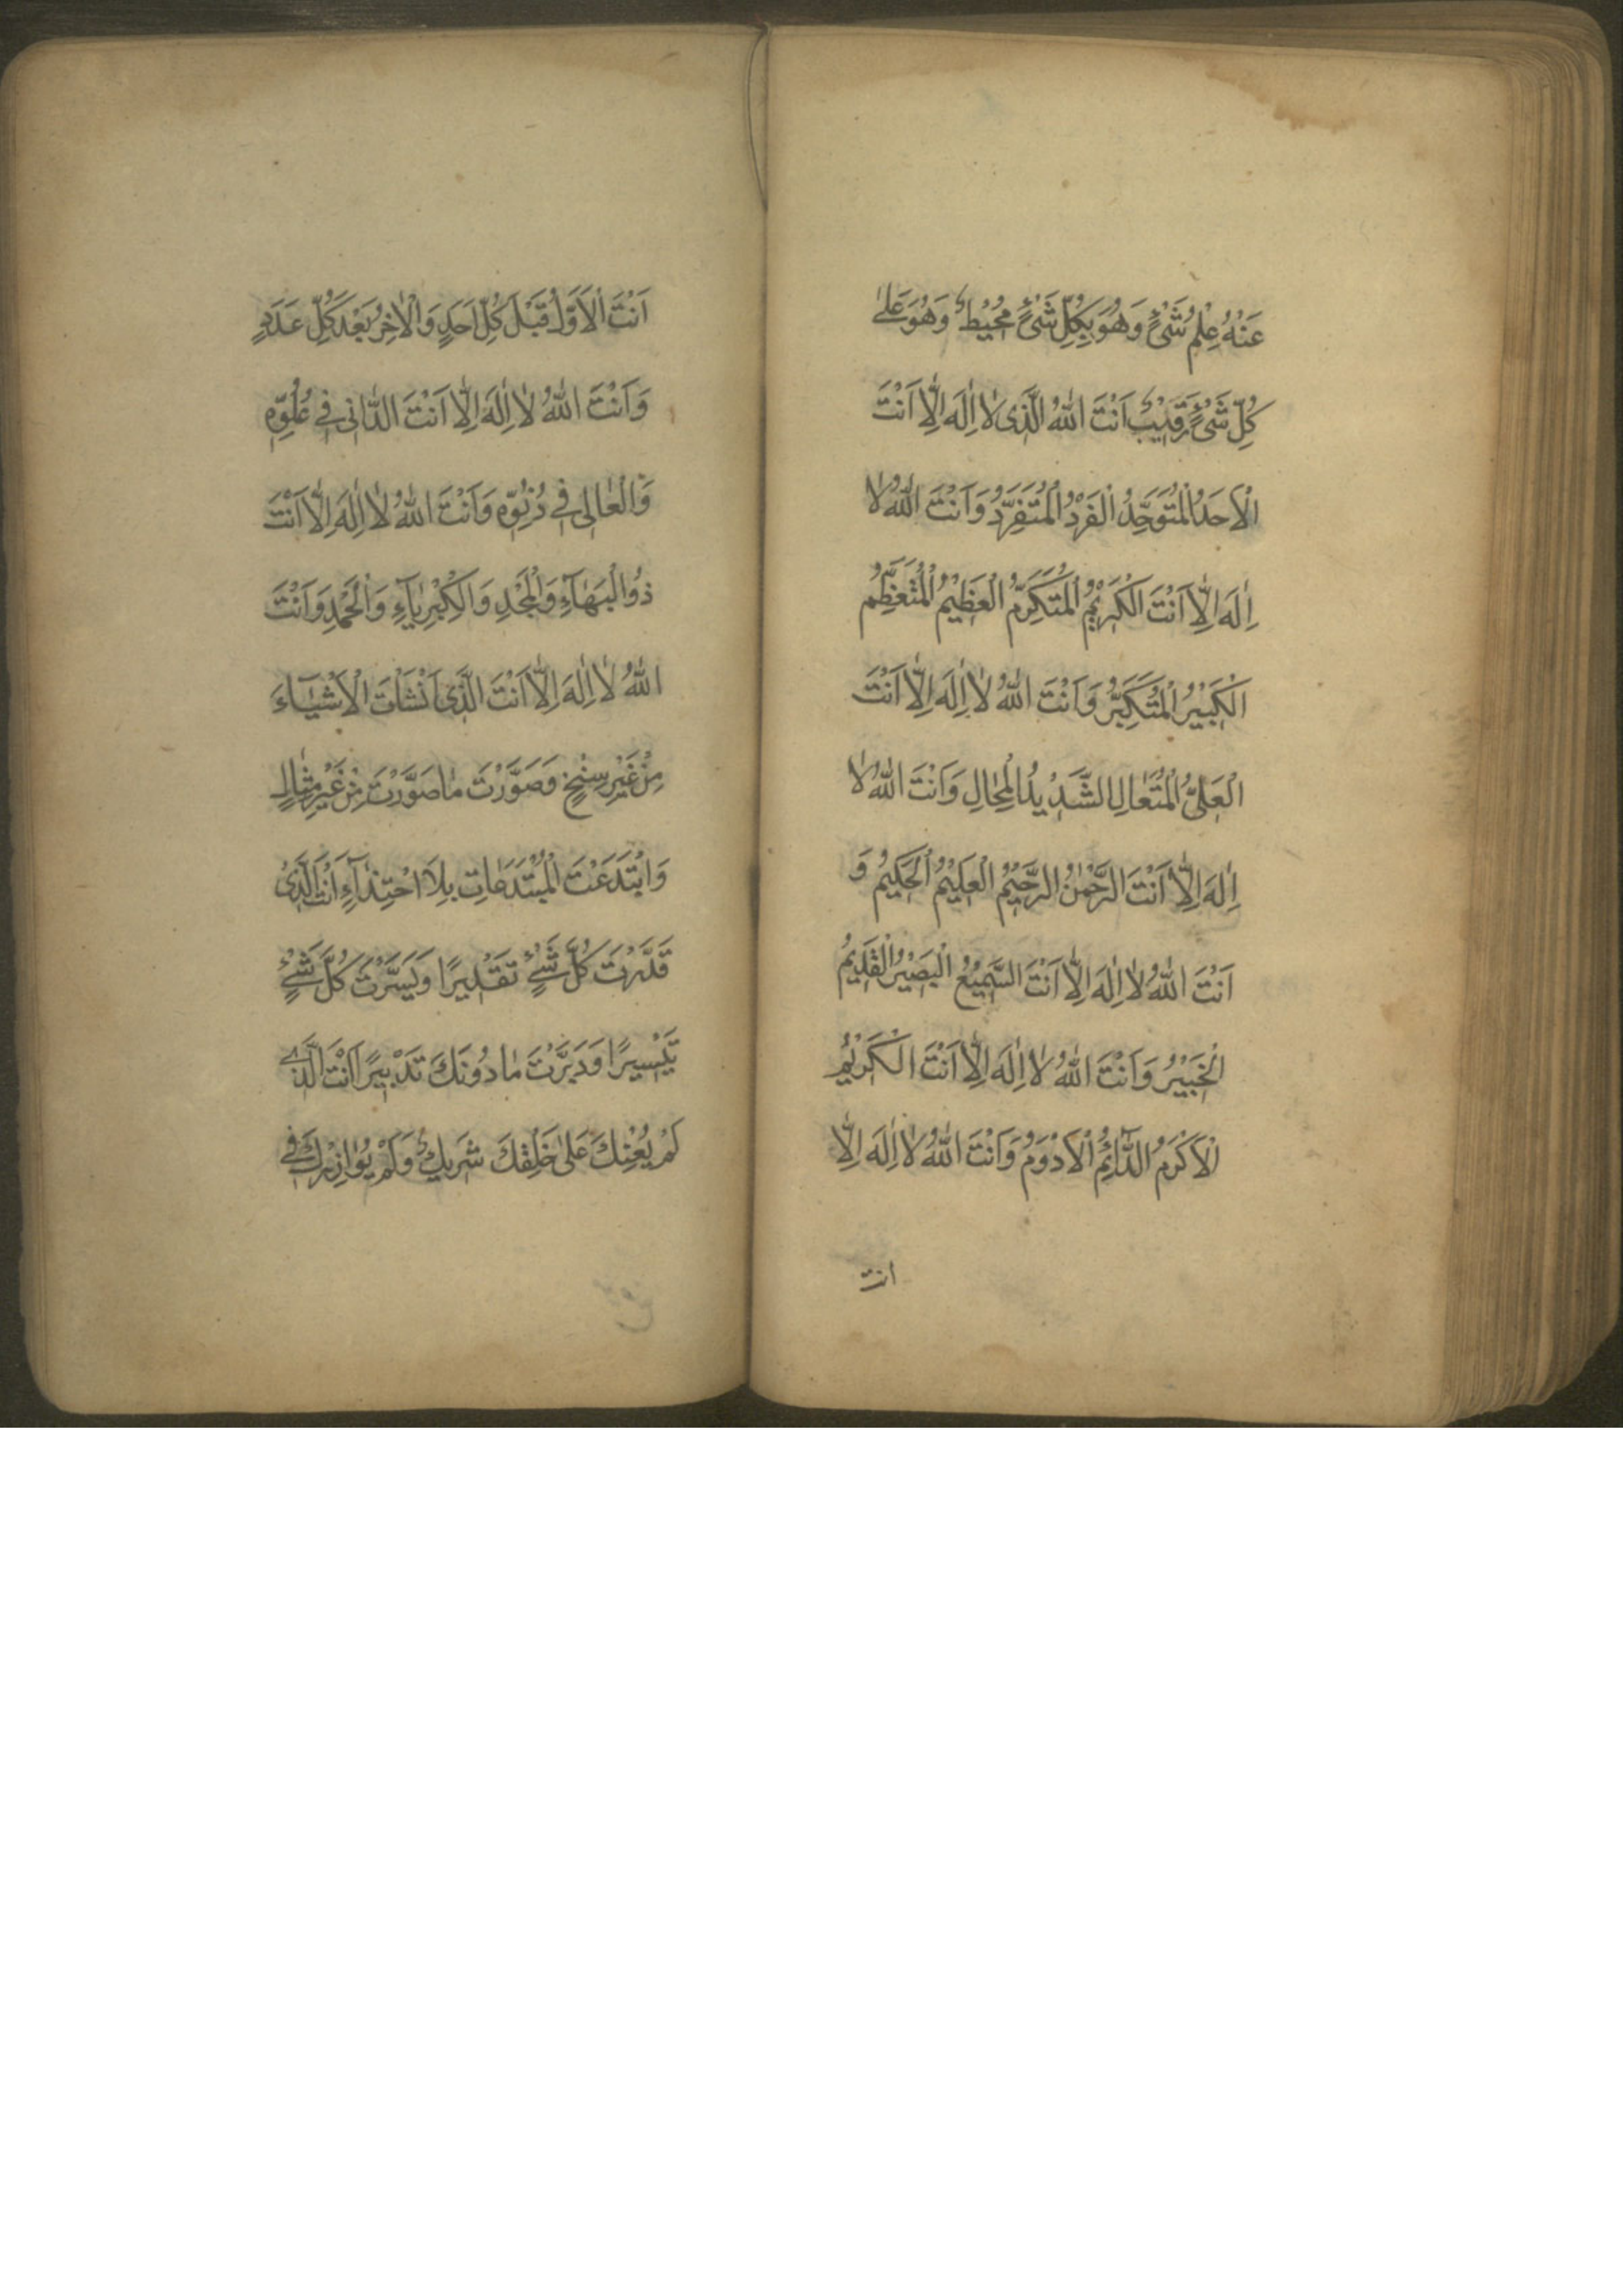 عَنْهُ عِلْمُ شَیْءٍ وَهُوَ بِكُلِّ شَیْءٍ مُحِيْطٌ وَهُوَ عَلٰی
كُلِّ شَیْءٍ رَقِيْبٌ اَنْتَ اللهُ الَّذی لٰا اِلٰهَ اِلّٰا اَنْتَ
الْاَحَدُ الْمُتَوَحِّدُ الْفَرْدُ الْمُتَفَرِّدُ وَاَنْتَ اللهُ لٰا
اِلٰهَ اِلّٰا اَنْتَ الْكَرِيْمُ الْمُتَكَرِّمُ الْعَظِيْمُ الْمُتَعَظِّمُ
الْكَبِيْرُ الْمُتَكَبِّرُ وَاَنْتَ اللهُ لٰا اِلٰهَ اِلّٰا اَنْتَ
الْعَلِیُّ الْمُتَعٰالِ الشَّدِيْدُ الْمِحٰالِ وَاَنْتَ اللهُ لٰا
اِلٰهَ اِلّٰا اَنْتَ الرَّحْمٰنُ الرَّحِيْمُ الْعَلِيْمُ الْحَكِيْمُ وَ
اَنْتَ اللهُ لٰا اِلٰهَ اِلّٰا اَنْتَ السَّمِيْعُ الْبَصِيْرُ الْقَدِيْمُ
الْخَبِيْرُ وَاَنْتَ اللهُ لٰا اِلٰهَ اِلّٰا اَنْتَ الْكَرِيْمُ
الْاَكْرَمُ الدّٰائِمُ الْاَدْوَمُ وَاَنْتَ اللهُ لٰا اِلٰهَ اِلّٰا
انت
اَنْتَ الْاَوَّلُ قَبْلَ كُلِّ اَحَدٍ وَالْاٰخِرُ بَعْدَ كُلِّ عَدَدٍ
وَاَنْتَ اللهُ لٰا اِلٰهَ اِلّٰا اَنْتَ الدّٰانی فی عُلُوِّهِ
وَالْعٰالی فی دُنُوِّهِ وَاَنْتَ اللهُ لٰا اِلٰهَ اِلّٰا اَنْتَ
ذُو الْبَهٰآءِ وَالْمَجْدِ وَالْكِبْرِيٰآءِ وَالْحَمْدِ وَاَنْتَ
اللهُ لٰا اِلٰهَ اِلّٰا اَنْتَ الَّذی اَنْشَاْتَ الْاَشْيٰآءَ
مِنْ غَيْرِ سِنْخٍ وَصَوَّرْتَ مٰا صَوَّرْتَ مِنْ غَيْرِ مِثٰالٍ
وَابْتَدَعْتَ الْمُبْتَدَعٰاتِ بِلَا احْتِذٰآءٍ اَنْتَ الَّذی
قَدَّرْتَ كُلَّ شَیْءٍ تَقْدِيرًا وَيَسَّرْتَ كُلَّ شَیْءٍ
تَيْسِيرًا وَدَبَّرْتَ مٰا دُونَكَ تَدْبِيرًا اَنْتَ الَّذی
لَمْ يُعِنْكَ عَلٰی خَلْقِكَ شَرِيكٌ وَلَمْ يُوٰازِرْكَ فی